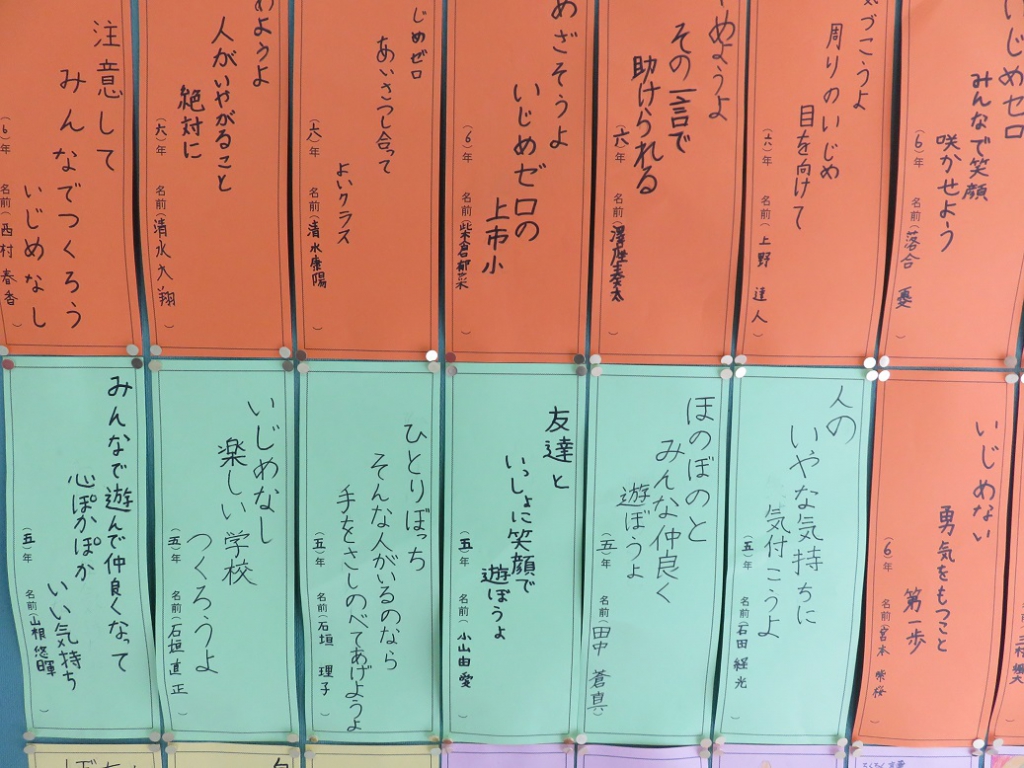 いじめゼロ
みんなで笑顔
咲かせよう
(6)年
名前(落合
気づこうよ
周りのいじめ
目を向けて
(六)年
名前(上野 達人)
やめようよ
その一言で
助けられる
(六)年
名前(
めざそうよ
いじめゼロの
上市小
(6)年
名前(
じめゼロ
あいさつし合って
よいクラス
(六)年
名前(清水康陽
)
めようよ
人がいやがること
絶対に
(六)年
名前(清水大翔
)
注意して
みんなでつくろう
いじめなし
(6)年
名前(西村春香
)
いじめない
勇気をもつこと
第一歩
(6)年
名前(宮本
)
人の
いやな気持ちに
気付こうよ
(五)年
名前(石田
)
ほのぼのと
みんな仲良く
遊ぼうよ
(五)年
名前(田中 蒼真)
友達と
いっしょに笑顔で
遊ぼうよ
(五)年
名前(小山由愛
)
ひとりぼっち
そんな人がいるのなら
手をさしのべてあげようよ
(五)年
名前(石垣 理子
)
いじめなし
楽しい学校
つくろうよ
(五)年
名前(石垣直正
)
みんなで遊んで仲良くなって
心ぽかぽか
いい気持ち
(五)年
名前(山根悠暉
)